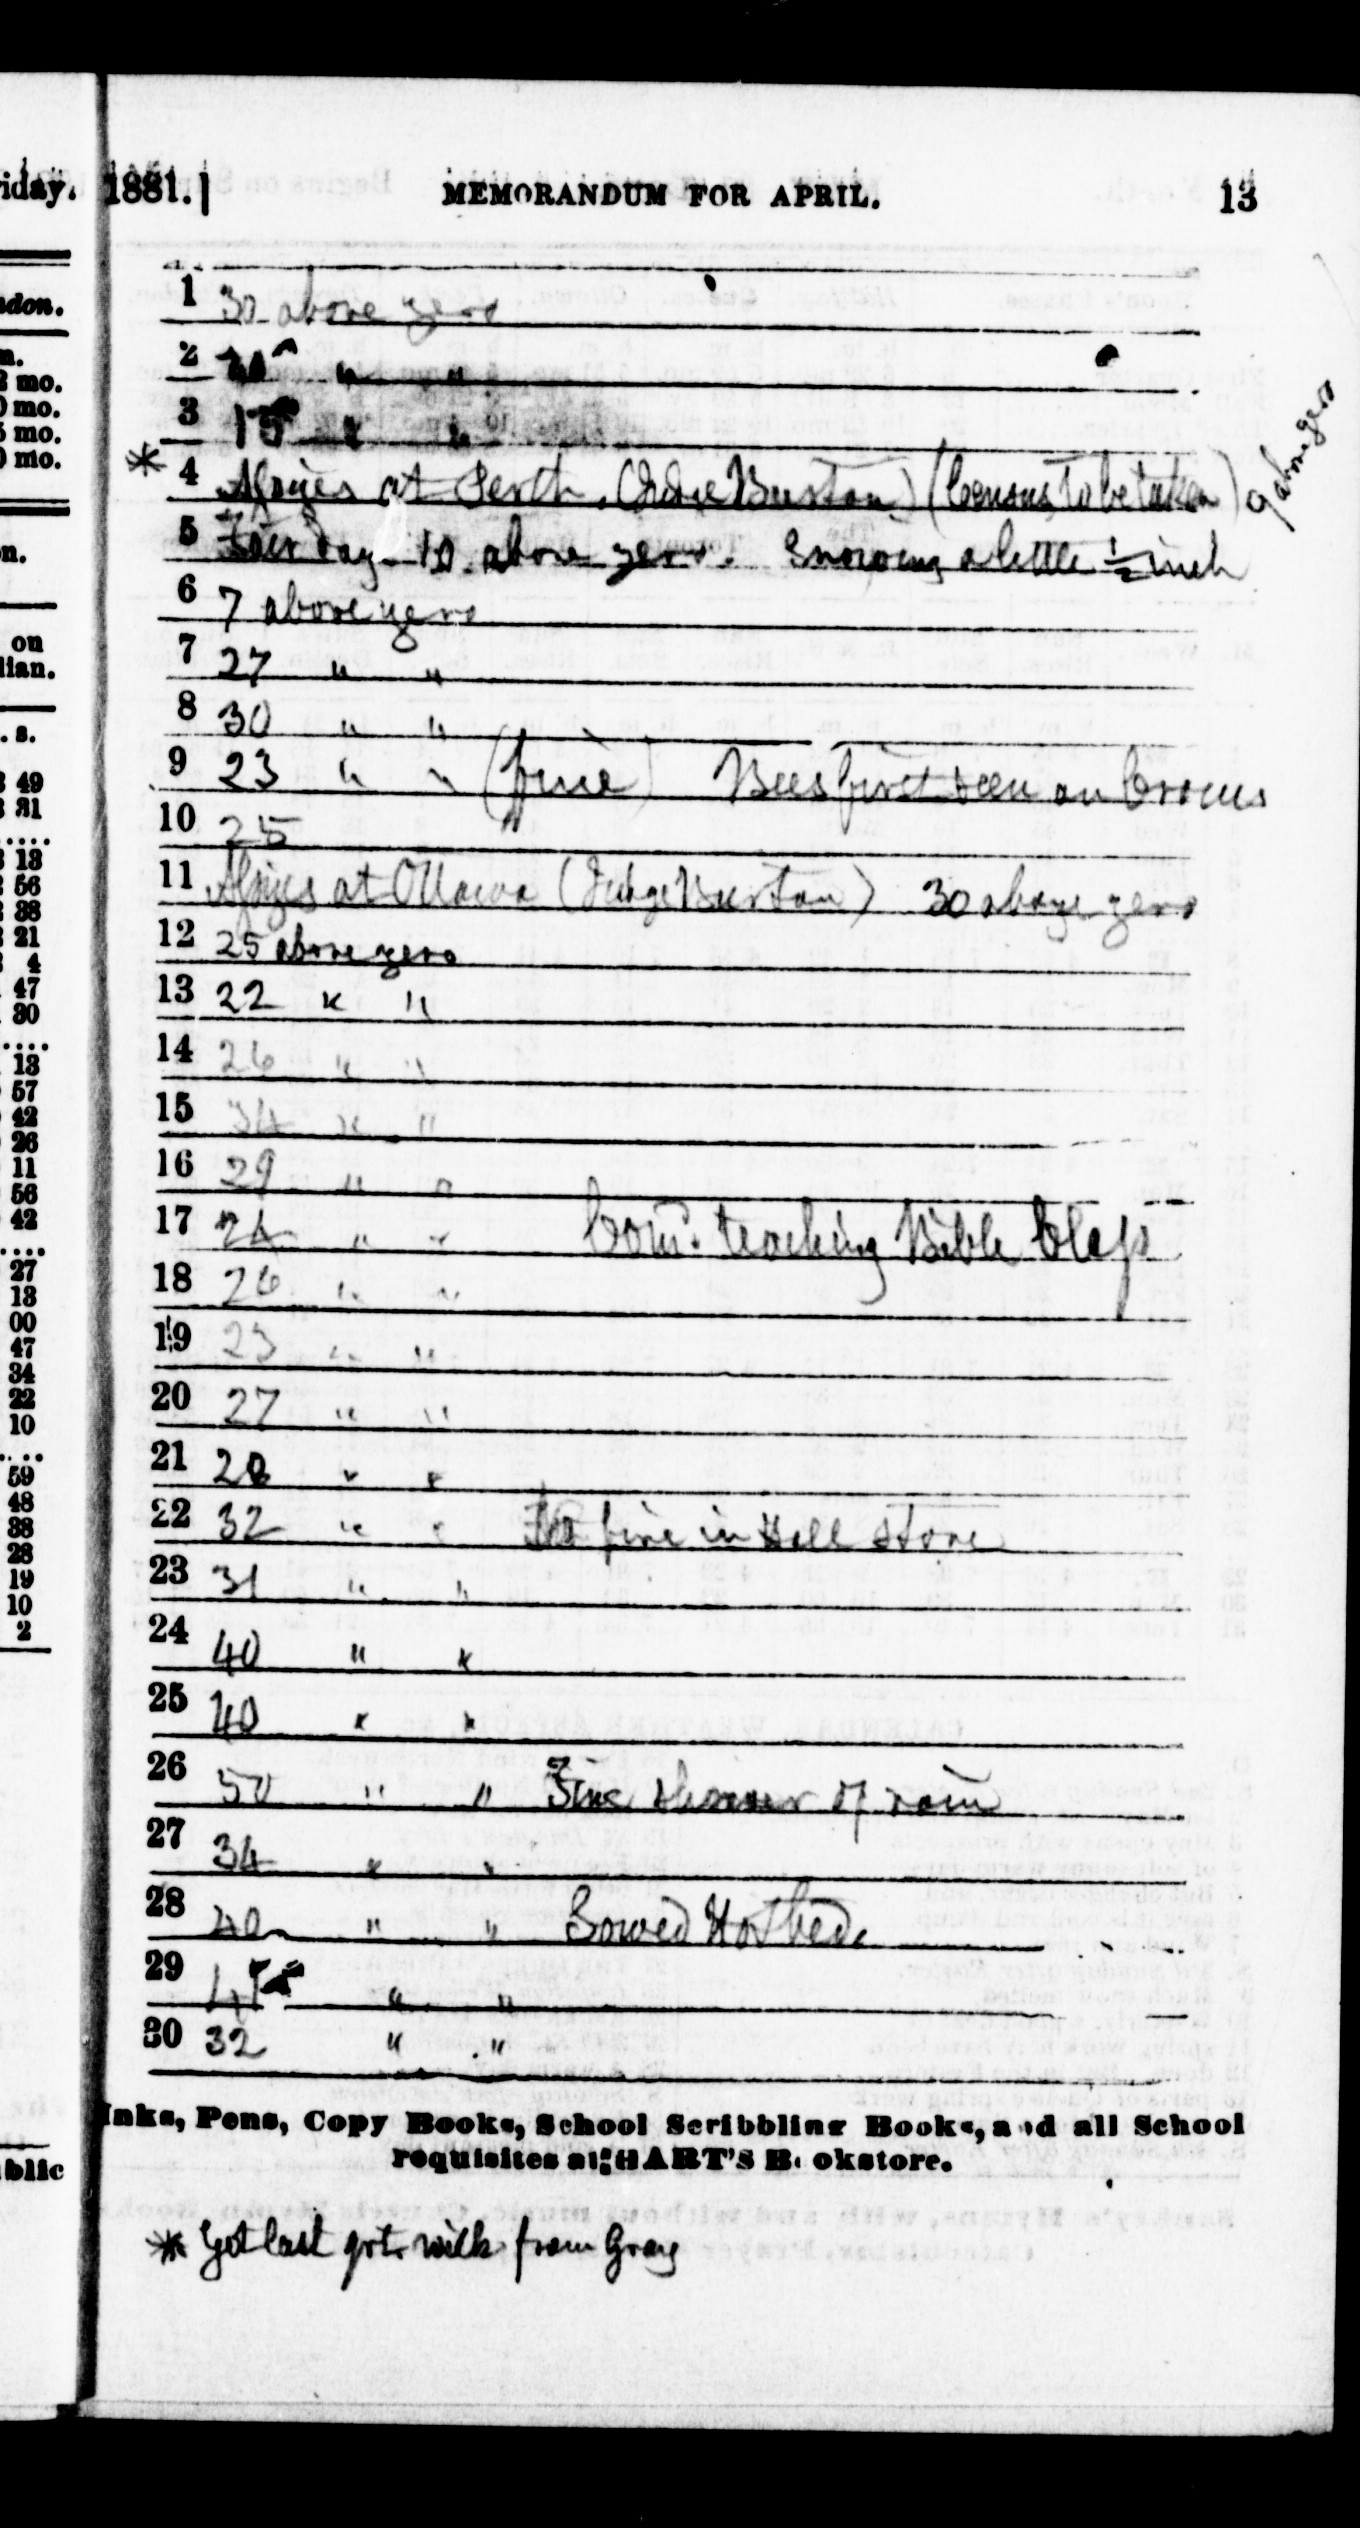 1881.] MEMORANDUM FOR APRIL. 13
1 30 above zero
2 " "
3 15 " "
* 4 Assizes at Perth. (Judge Burton) (Census to be taken) 9 above zero
5 Fair day 10 above zero. Snowing a little ½ inch
6 7 above zero
7 27 " "
8 30 " "
9 23 " " (fine) Bees first seen on Crocus
10 25
11 Assizes at Ottawa (Judge Burton) 30 above zero
12 25 above zero
13 22 " "
14 26 " "
15 34 " "
16 29 " "
17 24 " " Com'd. teaching Bible Class
18 26 " "
19 23 " "
20 27 " "
21 28 " "
22 32 " " No fire in Hall stove
23 31 " "
24 40 " "
25 40 " "
26 50 " " Fine shower of rain
27 34 " "
28 40 " " Sowed Hotbed.
29 " "
30 32 " "
Inks, Pens, Copy Books, School Scribbling Books, and all School
requisites at HART'S Bookstore.
* Got last qrt. milk from Gray
iday.
don.
n.
2 mo.
0 mo.
5 mo.
0 mo.
n.
on
lian.
. s.
49
31
13
56
38
21
4
47
30
13
57
42
26
11
56
42
27
13
00
47
34
22
10
59
48
38
28
19
10
2
blic